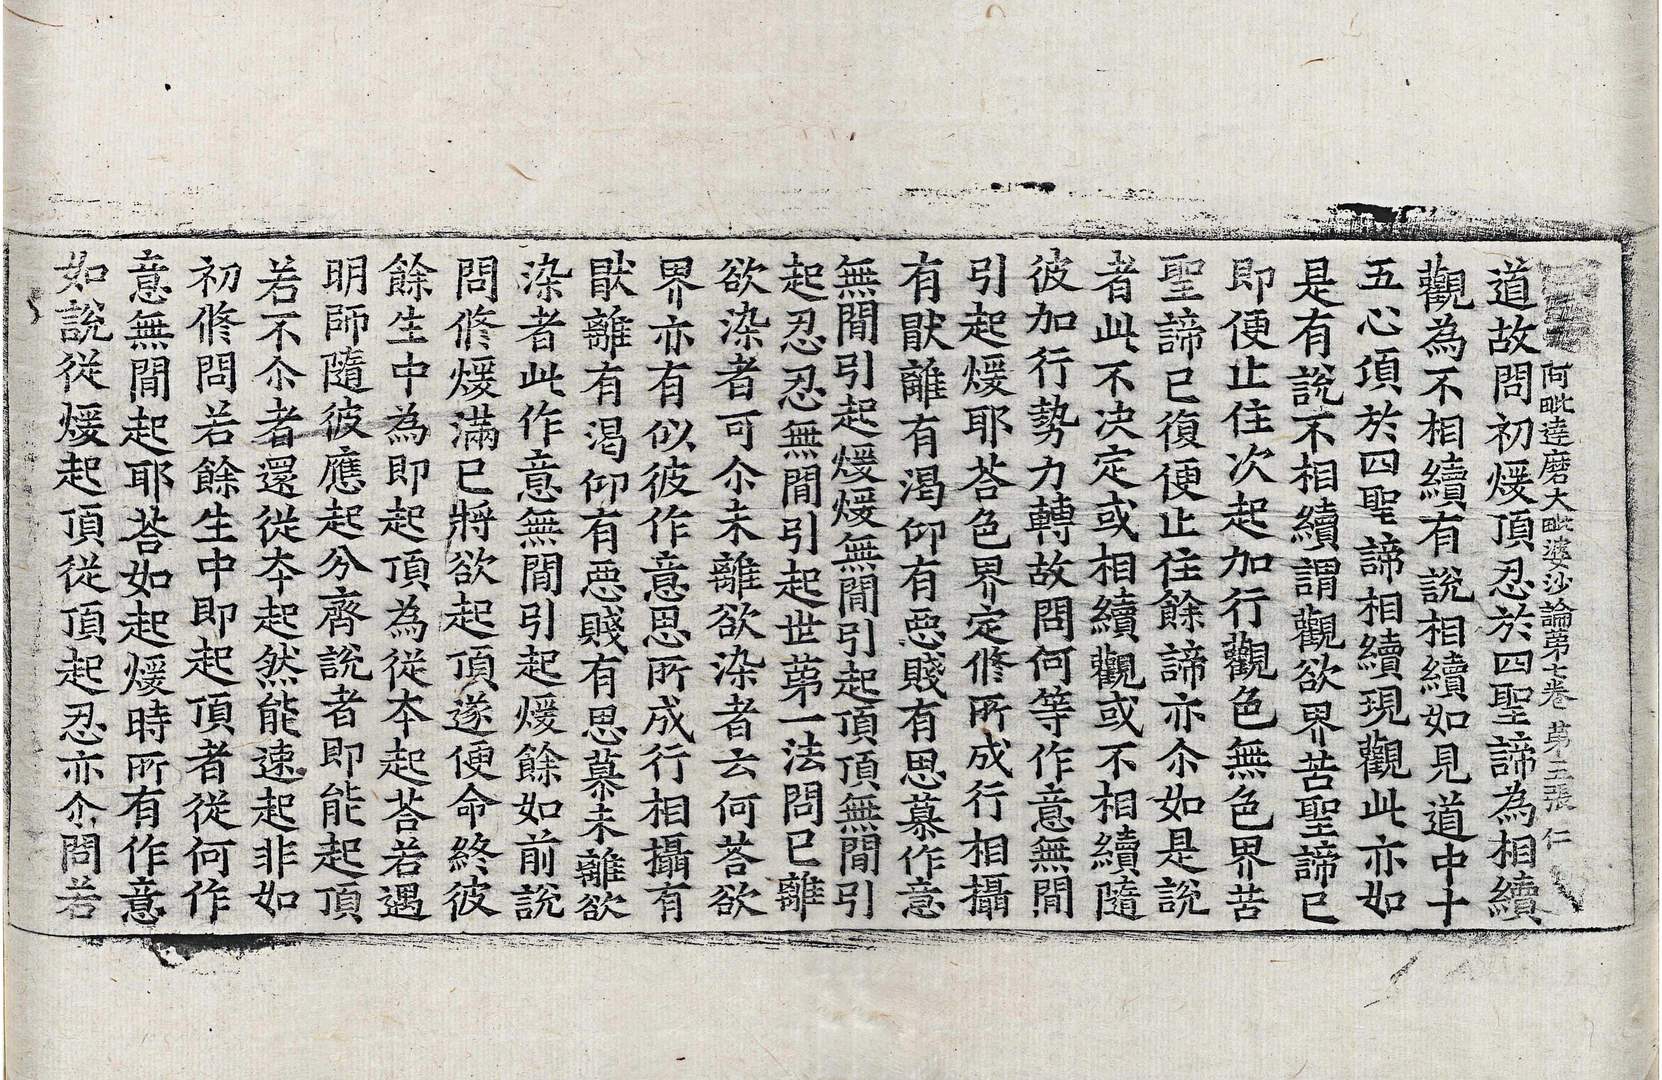 阿毗達磨大毗婆沙論第七卷 第三張 仁
道故問初煖頂忍於四聖諦為相續
觀為不相續有說相續如見道中十
五心頂於四聖諦相續現觀此亦如
是有說不相續謂觀欲界苦聖諦已
即便止住次起加行觀色無色界苦
聖諦已復便止住餘諦亦尒如是說
者此不决定或相續觀或不相續隨
彼加行勢力轉故問何等作意無間
引起煖耶荅色界定俢所成行相攝
有猒離有渴仰有惡賤有思慕作意
無間引起煖煖無間引起頂頂無間引
起忍忍無間引起世苐一法問已離
欲染者可尒未離欲染者云何荅欲
界亦有似彼作意思所成行相攝有
猒離有渴仰有惡賤有思慕未離欲
染者此作意無間引起煖餘如前說
問俢煖滿已將欲起頂遂便命終彼
餘生中為即起頂為從夲起荅若遇
明師隨彼應起分齊說者即能起頂
若不尒者還從夲起然能速起非如
初俢問若餘生中即起頂者從何作
意無間起耶荅如起煖時所有作意
如說從煖起頂從頂起忍亦尒問若